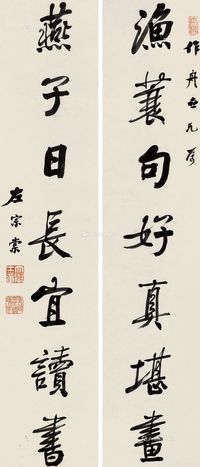 作舟世兄屬
漁蓑句好真堪畫
燕子日長宜讀書
左宗棠